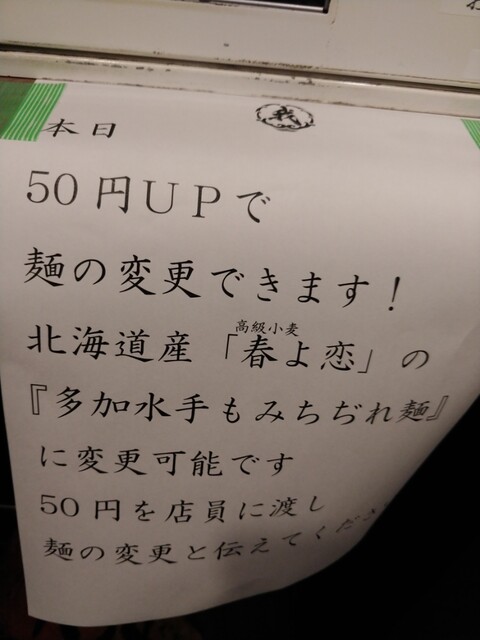 我
本日
50円UPで
麺の変更できます！
高級小麦
北海道産「春よ恋」の
『多加水手もみちぢれ麺』
に変更可能です
50円を店員に渡し
麺の変更と伝えてくださ